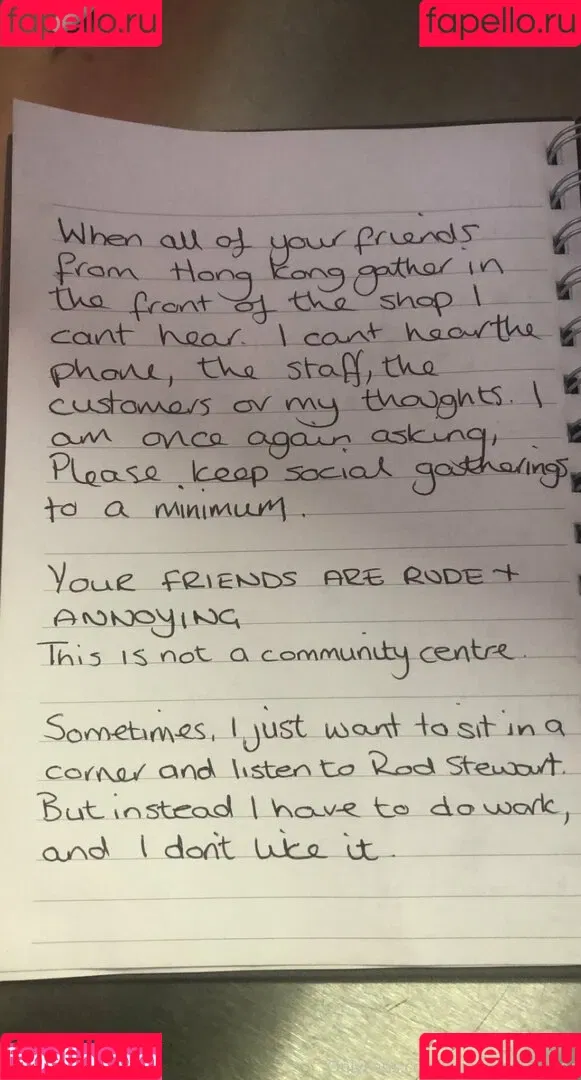 fapello.ru fapello.ru
When all of your friends
from Hong Kong gather in
the front of the shop I
cant hear. I cant hear the
phone, the staff, the
customers or my thoughts. I
am once again asking,
Please keep social gatherings
to a minimum.
YOUR FRIENDS ARE RUDE +
ANNOYING
This is not a community centre.
Sometimes, I just want to sit in a
corner and listen to Rod Stewart.
But instead I have to do work,
and I don't like it.
fapello.ru fapello.ru